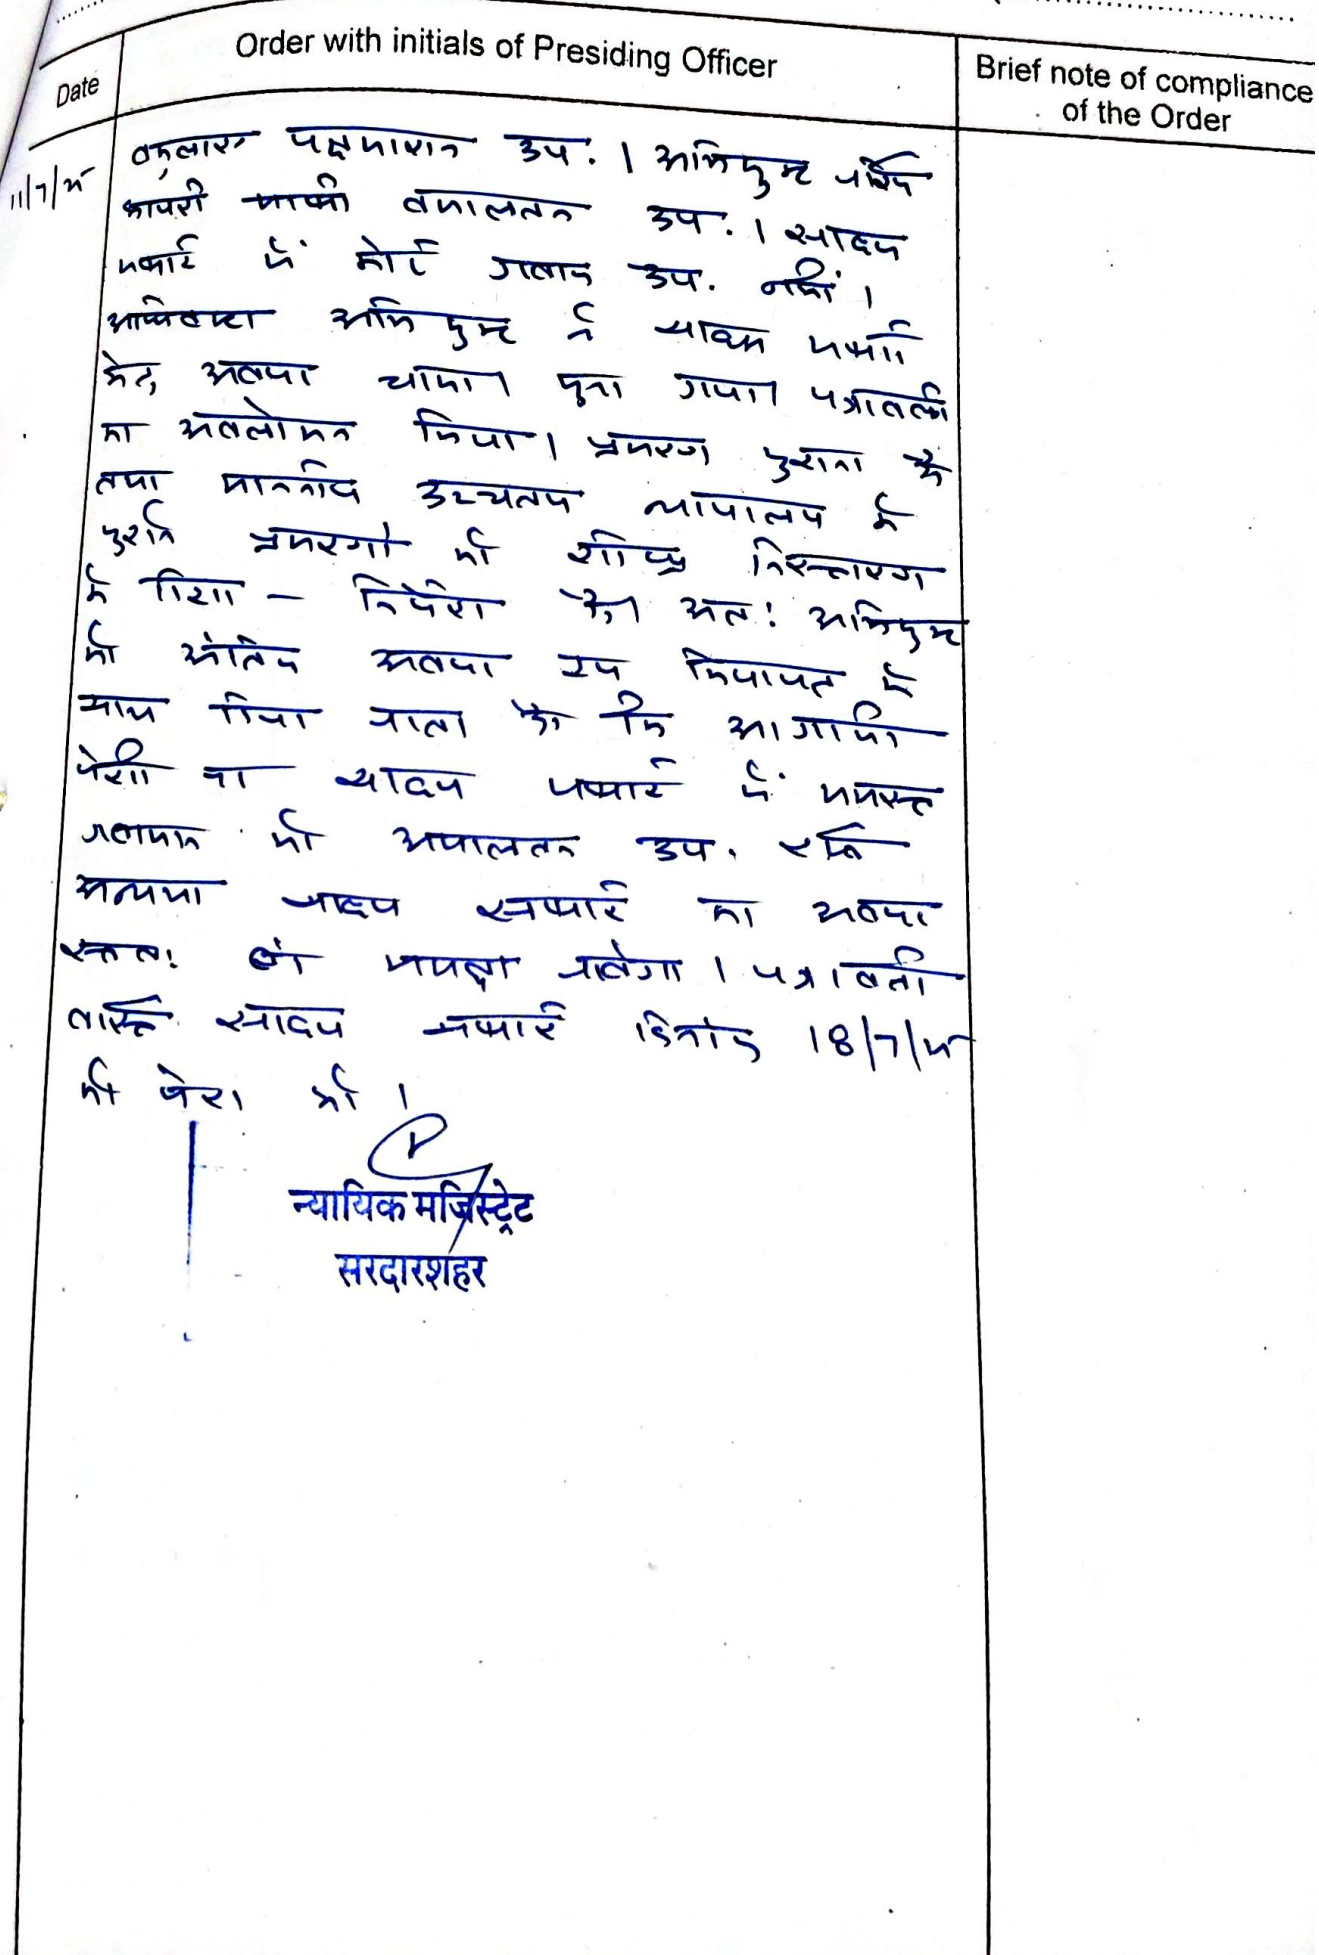 Order with initials of Presiding Officer
Brief note of compliance
of the Order
Date
11/7/25
वकुलाए पक्षकारान उप. । अभियुक्त
उप. । साक्ष्य
सफाई में कोई गवाह उप. नहीं ।
अधिवक्ता अभियुक्त ने साक्ष्य सफाई
हेतु अवसर चाहा। सुना गया। पत्रावली
का अवलोकन किया। प्रकरण पुराना है
तथा माननीय उच्चतम न्यायालय के
पुराने प्रकरणों के शीघ्र निस्तारण
के दिशा - निर्देश है। अतः अभियुक्त
को अंतिम अवसर इस हिदायत के
साथ दिया जाता है कि आगामी
पेशी पर साक्ष्य सफाई में समस्त
गवाहान को असालतन उप. रखे
अन्यथा साक्ष्य सफाई का अवसर
स्वतः ही समझा जावेगा । पत्रावली
वास्ते साक्ष्य सफाई दिनांक 18/7/25
को पेश हो ।
न्यायिक मजिस्ट्रेट
सरदारशहर